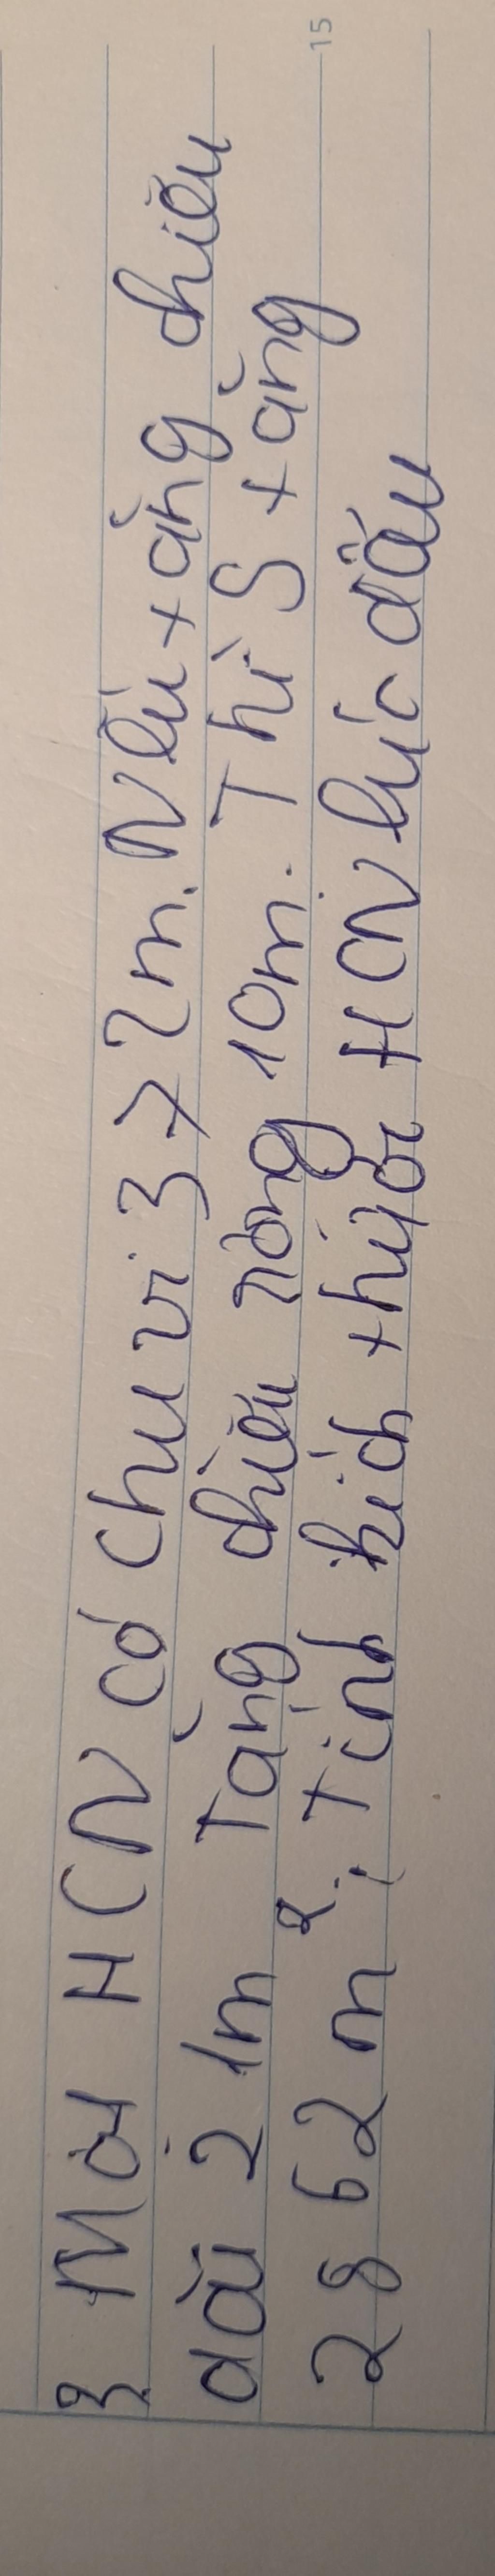 3 Một HCN có chu vi 372m. Nếu tăng chiều
dài 21m Tăng chiều rộng 10m. Thì S tăng
2862m². Tính kích thước HCN lúc đầu
15